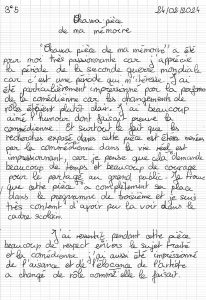 3°5
24/02/2024
Chawa pièce
de ma mémoire
"Chawa pièce de ma mémoire" a été
pour moi très passionnante car j'apprécie
la période de la seconde guerre mondiale
car c'est une période qui m'intéresse. J'ai
été particulièrement impressionné par la perform
de la comédienne car les changements de
rôles étaient clair. J'ai beaucoup
aimé l'humour dont faisait preuve la
comédienne. Et surtout le fait que les
recherches exposé dans cette pièce est menée
par la commédienne dans la vie réel est
impressionnant, car je pense que cela demande
beaucoup de temps et beaucoup de courage
pour la partagé au grand public. Je trouve
que cette pièce a complètement sa place
dans le programme de troisième et je suis
très content d'avoir pu la voir dans le
cadre scolaire.
J'ai ressenti pendant cette pièce
beaucoup de respect envers le sujet traité
et la comédienne. j'ai aussi été impressionné
de l'aisance et de l'éloquence de l'artiste
a changé de rôle comme elle le faisait.